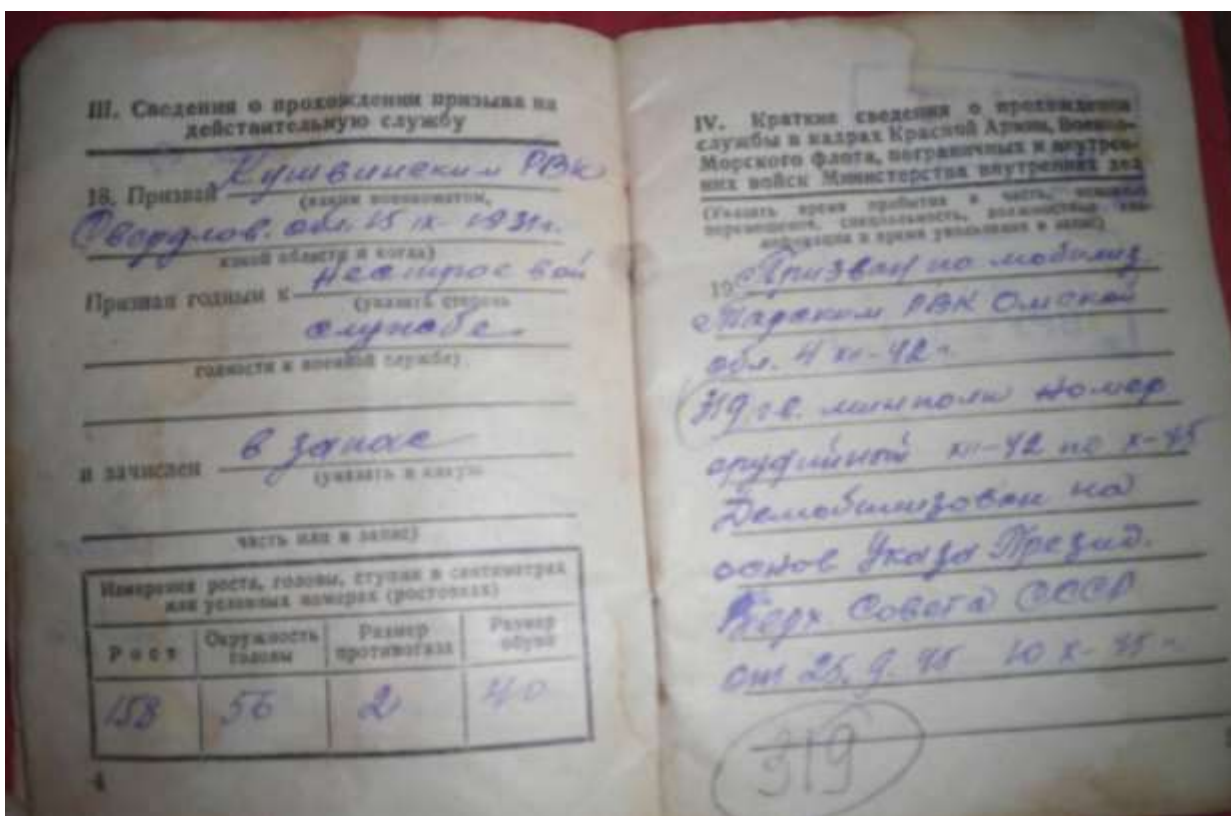 III. Сведения о прохождении призыва на
действительную службу
18. Призван Кушвинским РВК
(каким военкоматом,
Свердлов. обл. 15 IX-1931г.
какой области и когда)
Признан годным к нестроевой
(указать степень
службе
годности к военной службе)
и зачислен в запас
(указать в какую
часть или в запас)
Измерения роста, головы, ступни в сантиметрах
или условных номерах (ростовках)
Рост
Окружность головы
Размер противогаза
Размер обуви
158 56 2 40
4
IV. Краткие сведения о прохождении
службы в кадрах Красной Армии, Военно-
Морского флота, пограничных и внутрен-
них войск Министерства внутренних дел
(Указать время прибытия в часть,
перемещения, специальность,
и время увольнения в запас)
19 Призван по мобилиз.
РВК Омской
обл. 4 XII-42г.
319 гв. минполк номер
орудийный XII-42 по X-45
Демобилизован на
основ Указа Презид.
Верх Совета СССР
от 25.9.45 10 X-45г.
319